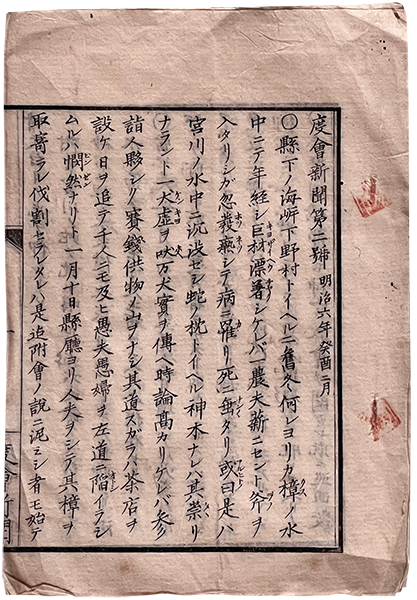 度會新聞第二號 明治六年癸酉二月
〇縣下ノ海岸下野村トイヘルニ舊冬何レヨリカ樟ノ水
中ニテ年経シ巨材漂著シケレバ一農夫薪ニセント斧ヲ
入タリシガ忽發瘈シテ病ニ罹リ死ニ垂タリ或曰是ハ
宮川ノ水中ニ沈没セシ蛇ノ枕トイヘル神木ナレハ其祟リ
ナラント一犬虚ヲ吠万犬實ヲ傳ヘ時論髙カリケレバ参
詣人夥シク賽錢供物ノ山ヲナシ其道スガラハ茶店ヲ
設ケ日ヲ追テ千人ニモ及ヒ愚夫愚婦ヲ左道ニ陥イラシ
ムル八憫然ナリト一月十日縣廳ヨリ人夫ヲシテ其樟ヲ
取寄ラレ伐割セラレタレハ是迠附會ノ説ニ泥ミシ者モ始テ
度會新聞